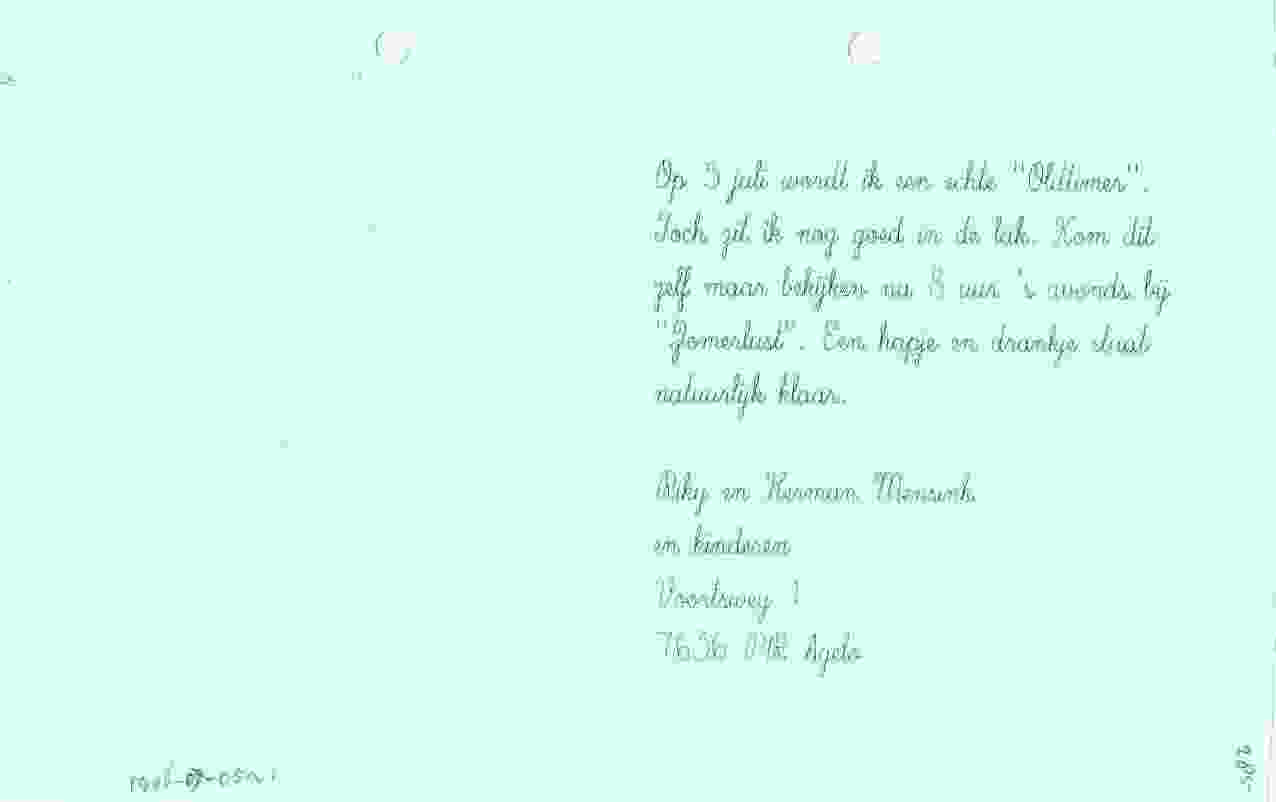 Op 3 juli wordt ik een echte "Oldtimer".
Toch zit ik nog goed in de lak. Kom dit
zelf maar bekijken na 8 uur 's avonds bij
"Zomerlust". Een hapje en drankje staat
natuurlijk klaar.
Riky en Herman Mensink
en kinderen
Voortsweg 1
7636 Agelo
285